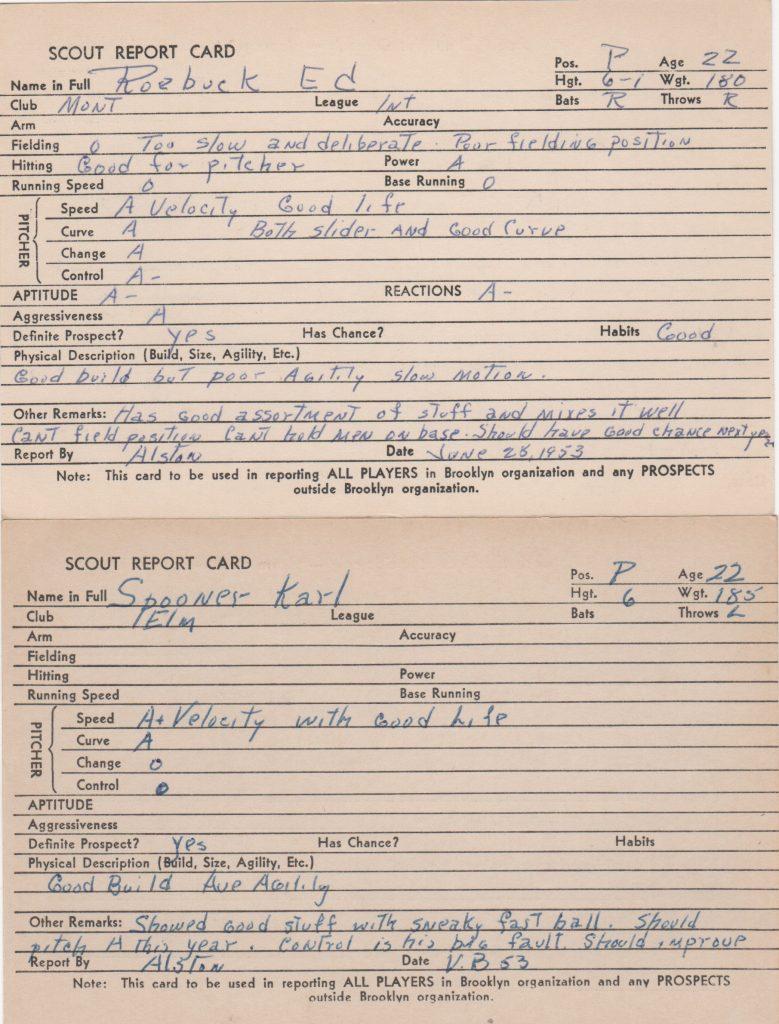 SCOUT REPORT CARD
Pos. P Age 22
Name in Full Roebuck Ed Hgt. 6-1 Wgt. 180
Club MONT League Int Bats R Throws R
Arm Accuracy
Fielding 0 Too slow and deliberate. Poor fielding position
Hitting Good for pitcher Power A
Running Speed 0 Base Running 0
PITCHER
Speed A Velocity Good life
Curve A Both slider AND Good Curve
Change A
Control A-
APTITUDE A- REACTIONS A-
Aggressiveness A
Definite Prospect? yes Has Chance? Habits Good
Physical Description (Build, Size, Agility, Etc.)
Good build but poor Agility slow motion.
Other Remarks: Has Good assortment of stuff and mixes it well
Cant field position Cant hold men on base. Should have Good chance next year
Report By Alston Date June 28, 1953
Note: This card to be used in reporting ALL PLAYERS in Brooklyn organization and any PROSPECTS
outside Brooklyn organization.
SCOUT REPORT CARD
Pos. P Age 22
Name in Full Spooner Karl Hgt. 6 Wgt. 185
Club Elm League Bats Throws L
Arm Accuracy
Fielding
Hitting Power
Running Speed Base Running
PITCHER
Speed A+ Velocity with Good Life
Curve A
Change 0
Control 0
APTITUDE
Aggressiveness
Definite Prospect? yes Has Chance? Habits
Physical Description (Build, Size, Agility, Etc.)
Good Build Ave Agility
Other Remarks: Showed Good stuff with sneaky fast ball. Should
pitch A this year. Control is his big fault. Should improve
Report By Alston Date V.B 53
Note: This card to be used in reporting ALL PLAYERS in Brooklyn organization and any PROSPECTS
outside Brooklyn organization.